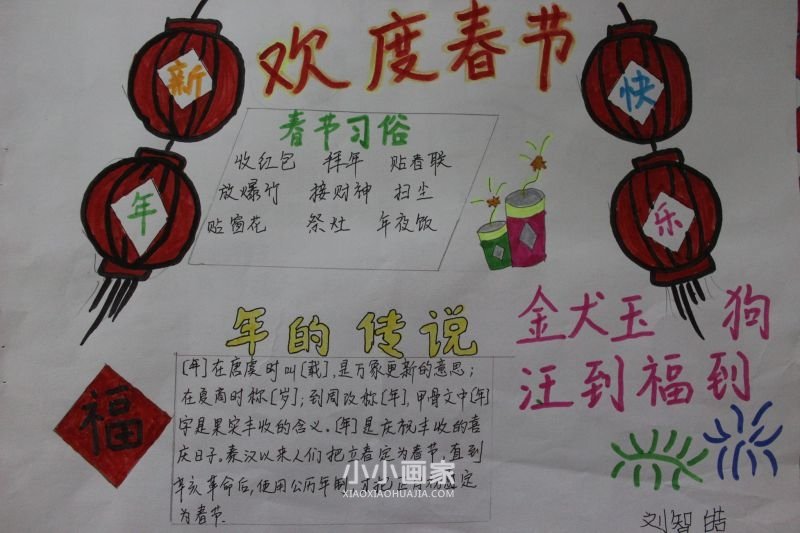 欢度春节
新年
快乐
春节习俗
收红包 拜年 贴春联
放爆竹 接财神 扫尘
贴窗花 祭灶 年夜饭
年的传说
[年]在唐虞时叫[载],是万家更新的意思;
在夏商时称[岁];到周改称[年],甲骨文中[年]
字是果实丰收的含义。[年]是庆祝丰收的喜
庆日子。秦汉以来人们把立春定为春节,直到
辛亥革命后,使用公历年制,才把正月
定
为春节.
福
金犬玉 狗
汪到福到
刘智皓
小小画家
XIAOXIAOHUAJIA.COM